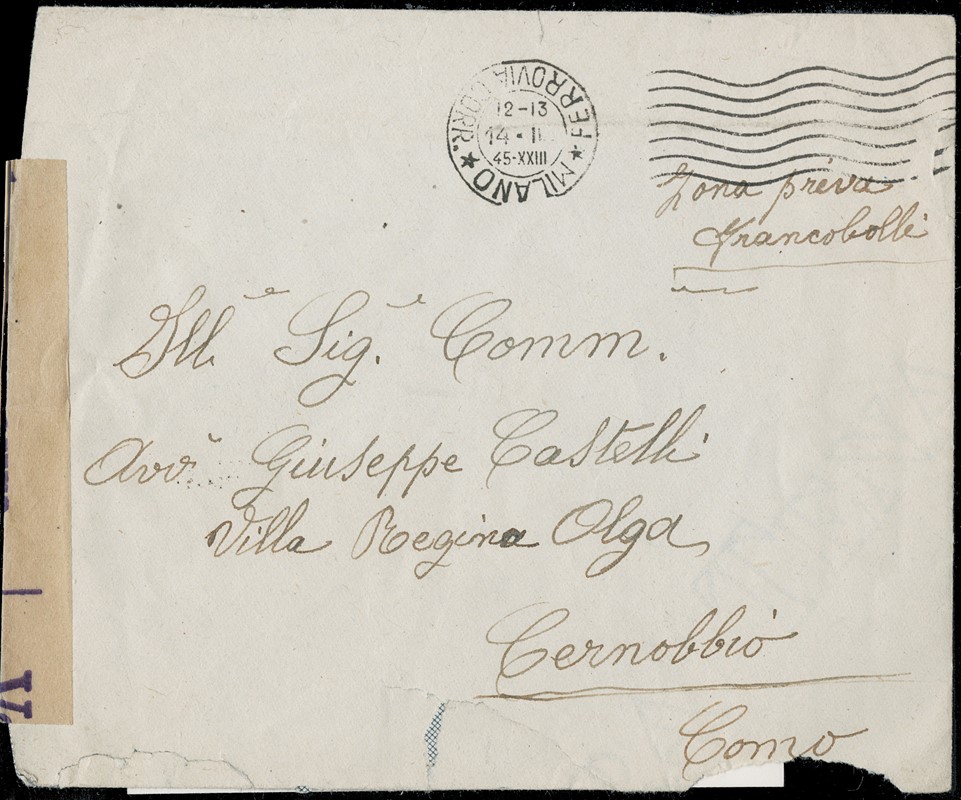 MILANO FERROVIA CORR.
12-13
14·II
45-XXIII
Zona priva
Francobolli
Ill.e Sig.e Comm.
Avv. Giuseppe Castelli
Villa Regina Olga
Cernobbio
Como